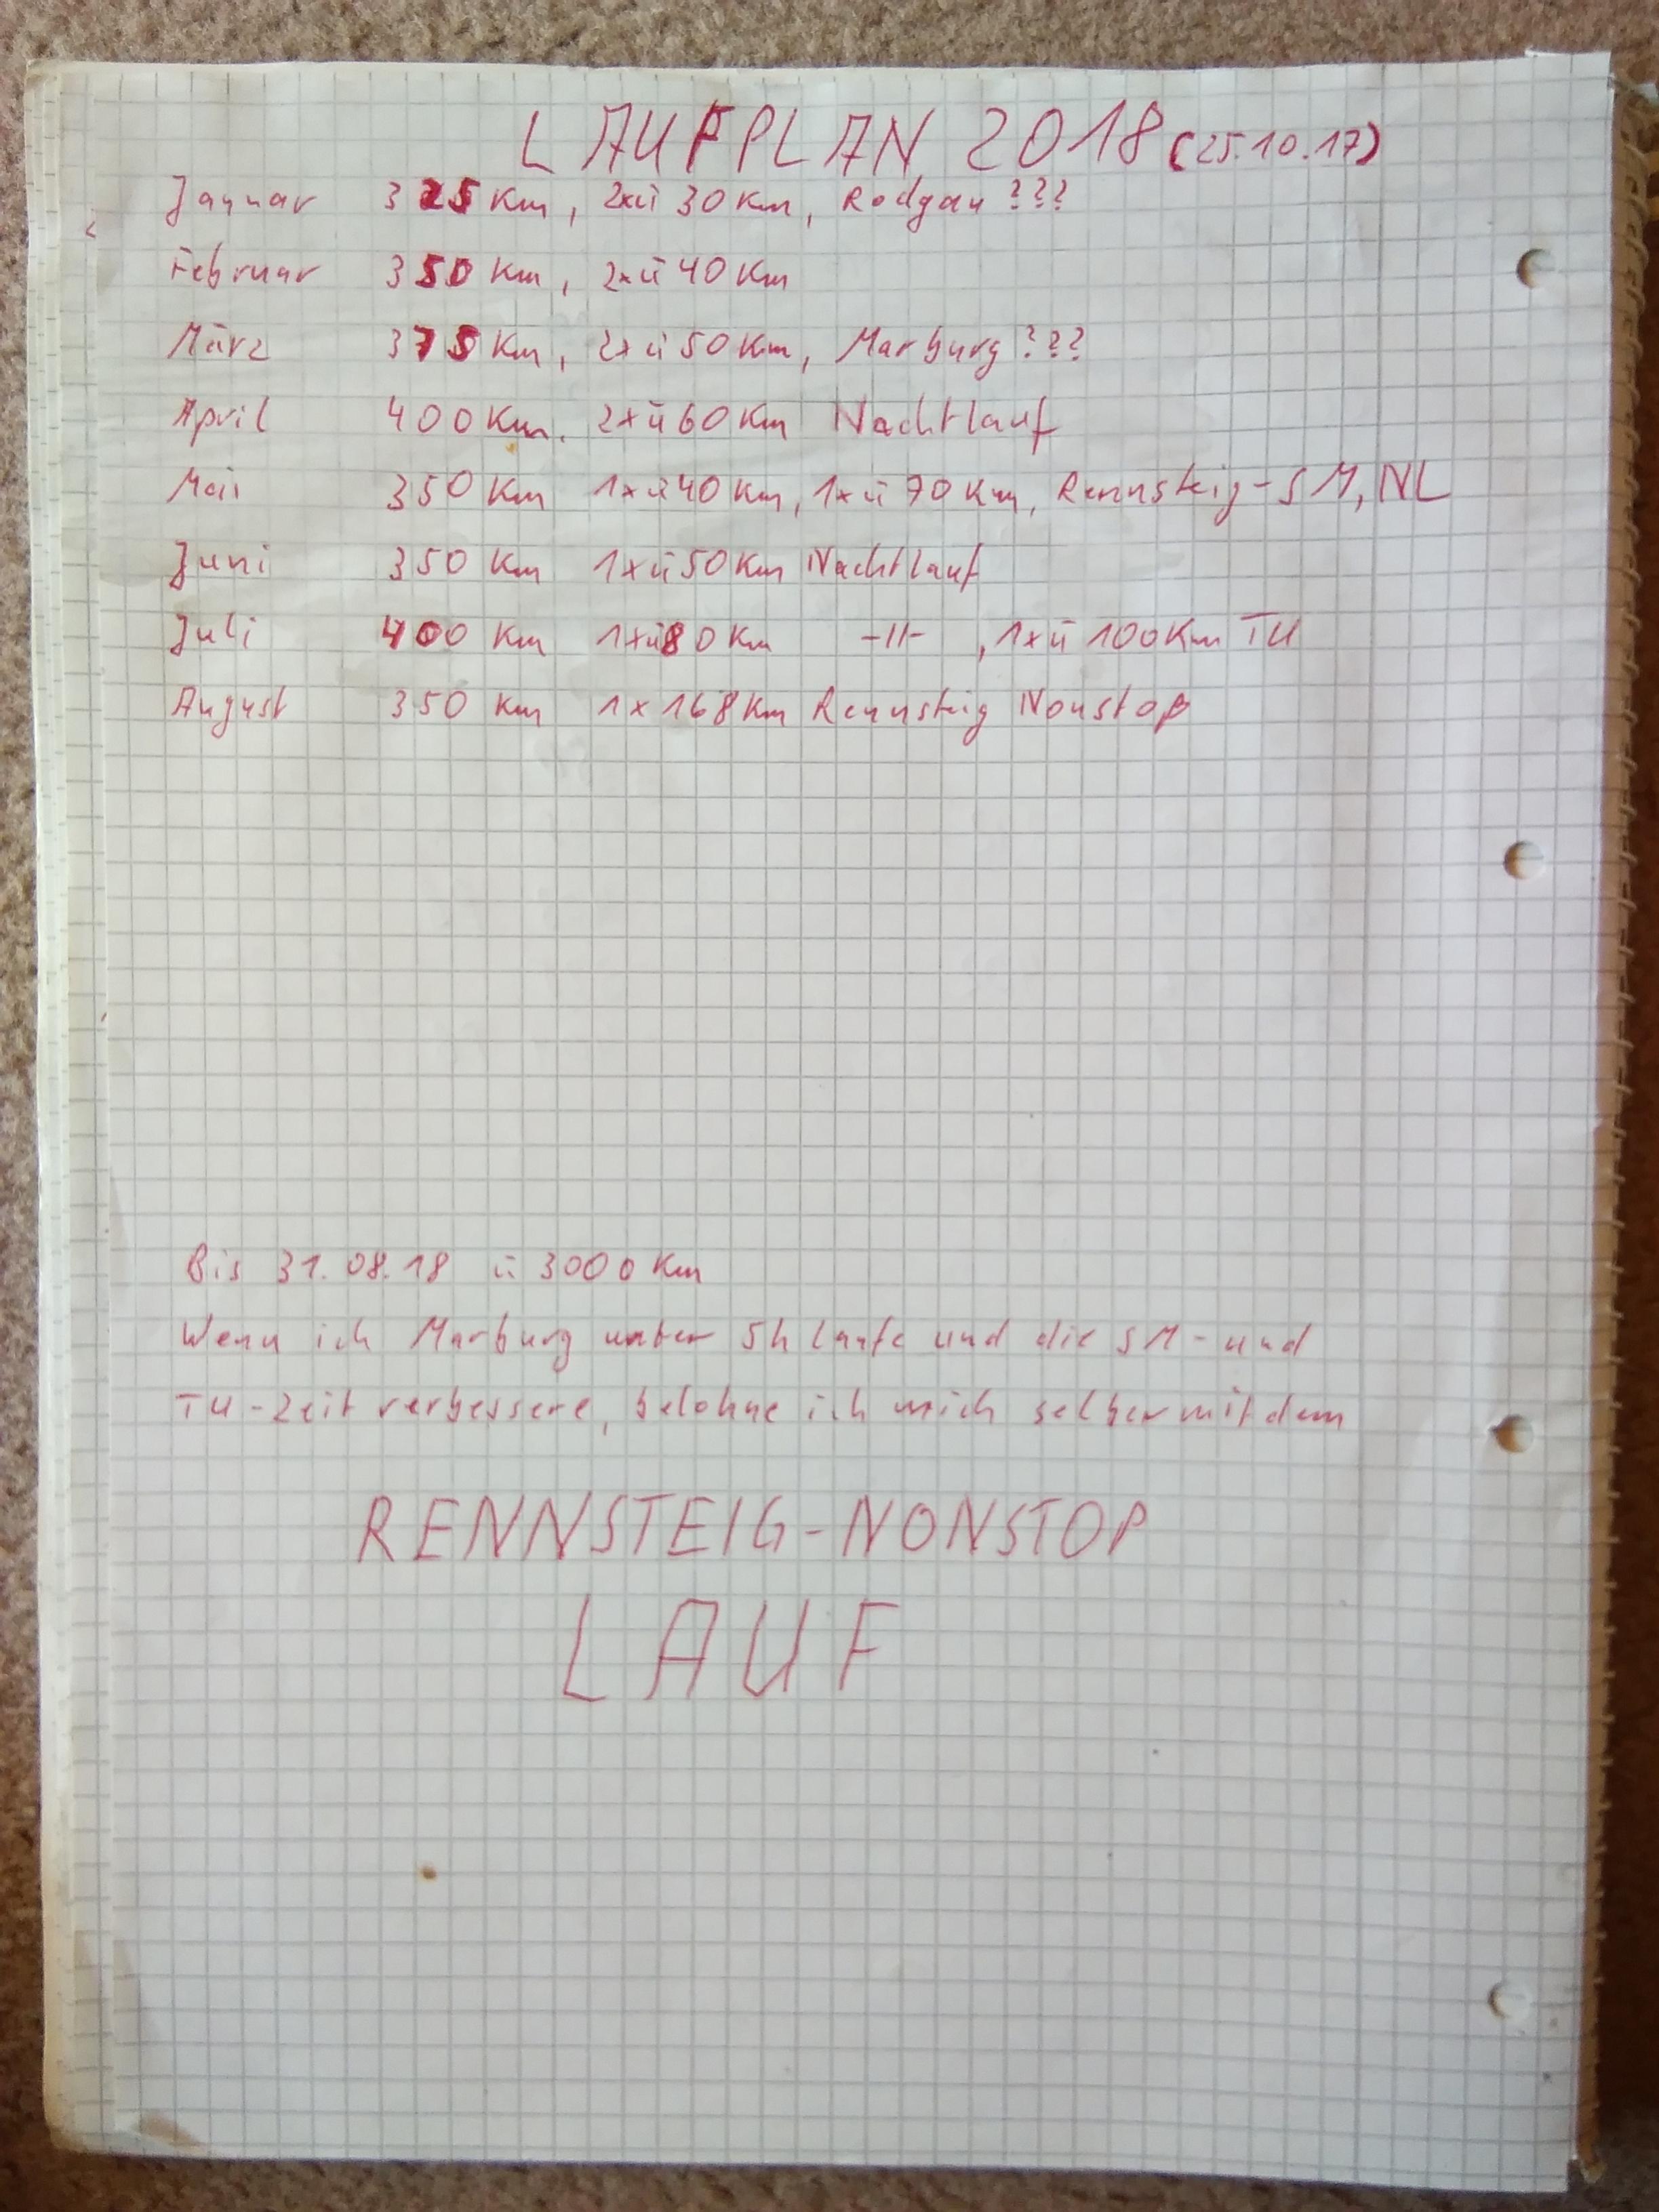 LAUFPLAN 2018 (25.10.17)
Januar 325 Km, 2xü 30 Km, Rodgau ???
Februar 350 Km, 2xü 40 Km
März 375 Km, 2xü 50 Km, Marburg ???
April 400 Km. 2xü 60 Km Nachtlauf
Mai 350 Km 1xü 40 Km, 1xü 70 Km, Rennsteig-SM, NL
Juni 350 Km 1xü 50 Km Nachtlauf
Juli 400 Km 1xü 80 Km -11- , 1xü 100 Km TU
August 350 Km 1x 168 Km Rennsteig Nonstop
Bis 31.08.18 ü 3000 Km
Wenn ich Marburg unter 5h laufe und die SM- und
TU-Zeit verbessere, belohne ich mich selber mit dem
RENNSTEIG-NONSTOP
LAUF